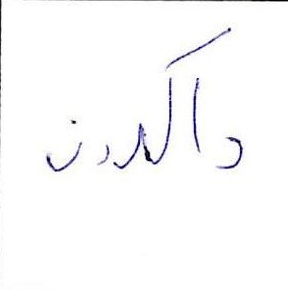 واکردن